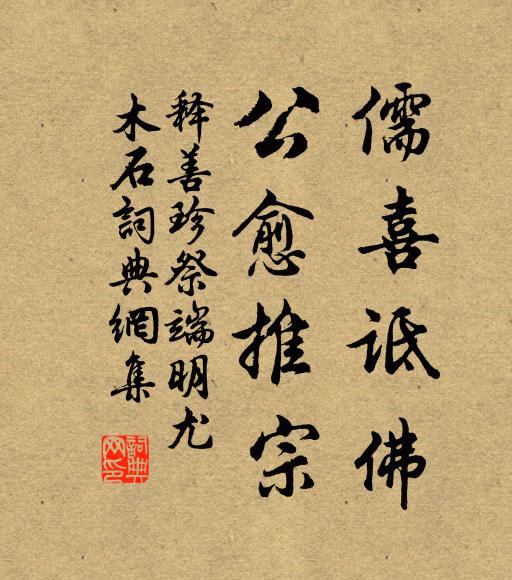 儒喜詆佛
公愈推宗
释善珍祭端明尤
木石詞典網集
詞典网印